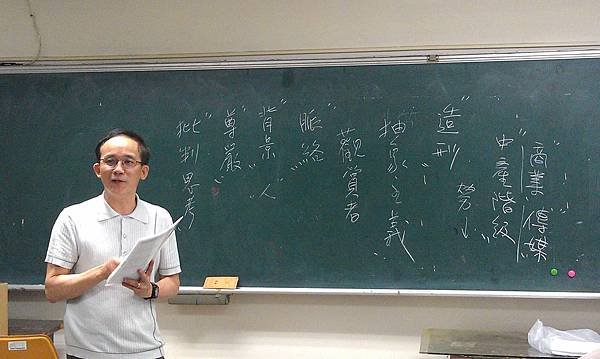 "商業"傳媒"
中產階級"
勞↓
"造型"
抽象主義"
觀賞者
"脈絡"
"背景"人
"尊嚴"
批判思考